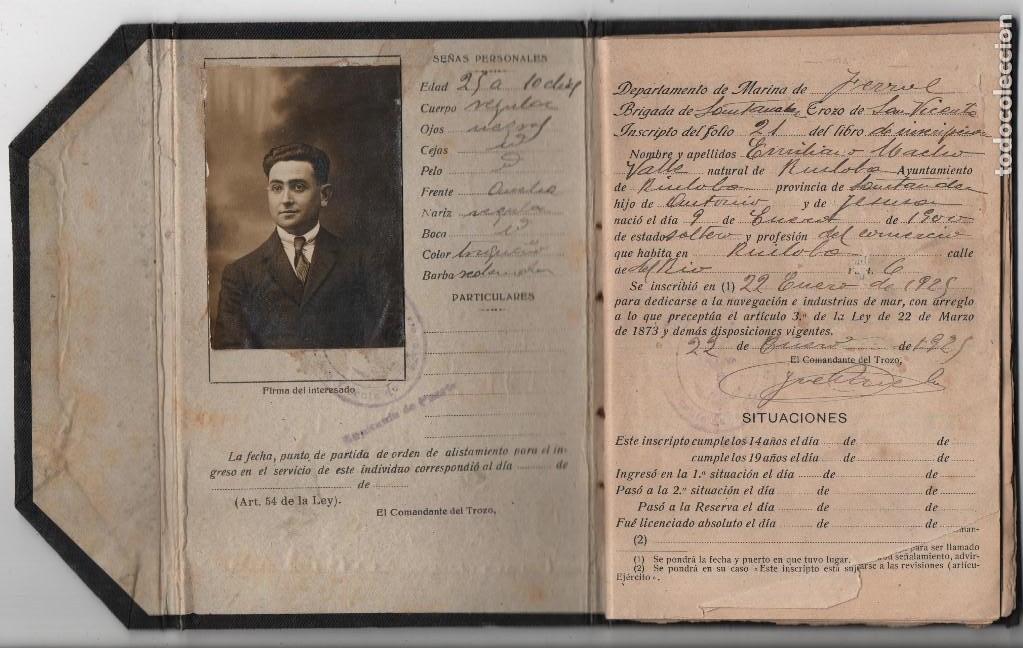 SEÑAS PERSONALES
Edad 25 a 10 dias
Cuerpo regular
Ojos negros
Cejas id
Pelo id
Frente Ancha
Nariz regular
Boca id
Color trigueño
Barba redonda
PARTICULARES
Firma del interesado
La fecha, punto de partida de orden de alistamiento para el in-
greso en el servicio de este individuo correspondió al día de
de
(Art. 54 de la Ley).
El Comandante del Trozo,
Departamento de Marina de Ferrol
Brigada de Santander Trozo de San Vicente
Inscripto del folio 21 del libro de inscripcion
Nombre y apellidos Emiliano Macho
Valle natural de Ruiloba Ayuntamiento
de Ruiloba provincia de Santander
hijo de Antonio y de Jesusa
nació el día 9 de Enero de 1900
de estado soltero y profesión del comercio
que habita en Ruiloba calle
de del Rio 6
Se inscribió en (1) 22 Enero de 1925
para dedicarse a la navegación e industrias de mar, con arreglo
a lo que preceptúa el artículo 3.º de la Ley de 22 de Marzo
de 1873 y demás disposiciones vigentes.
22 de Enero de 1925
El Comandante del Trozo,
SITUACIONES
Este inscripto cumple los 14 años el día de de
cumple los 19 años el día de de
Ingresó en la 1.ª situación el día de de
Pasó a la 2.ª situación el día de de
Pasó a la Reserva el día de de
Fué licenciado absoluto el día de de
(2)
(1) Se pondrá la fecha y puerto en que tuvo lugar.
(2) Se pondrá en su caso «Este inscripto está
para ser llamado
señalamiento, advir-
arse a las revisiones (artícu-
Ejército».
todocoleccion